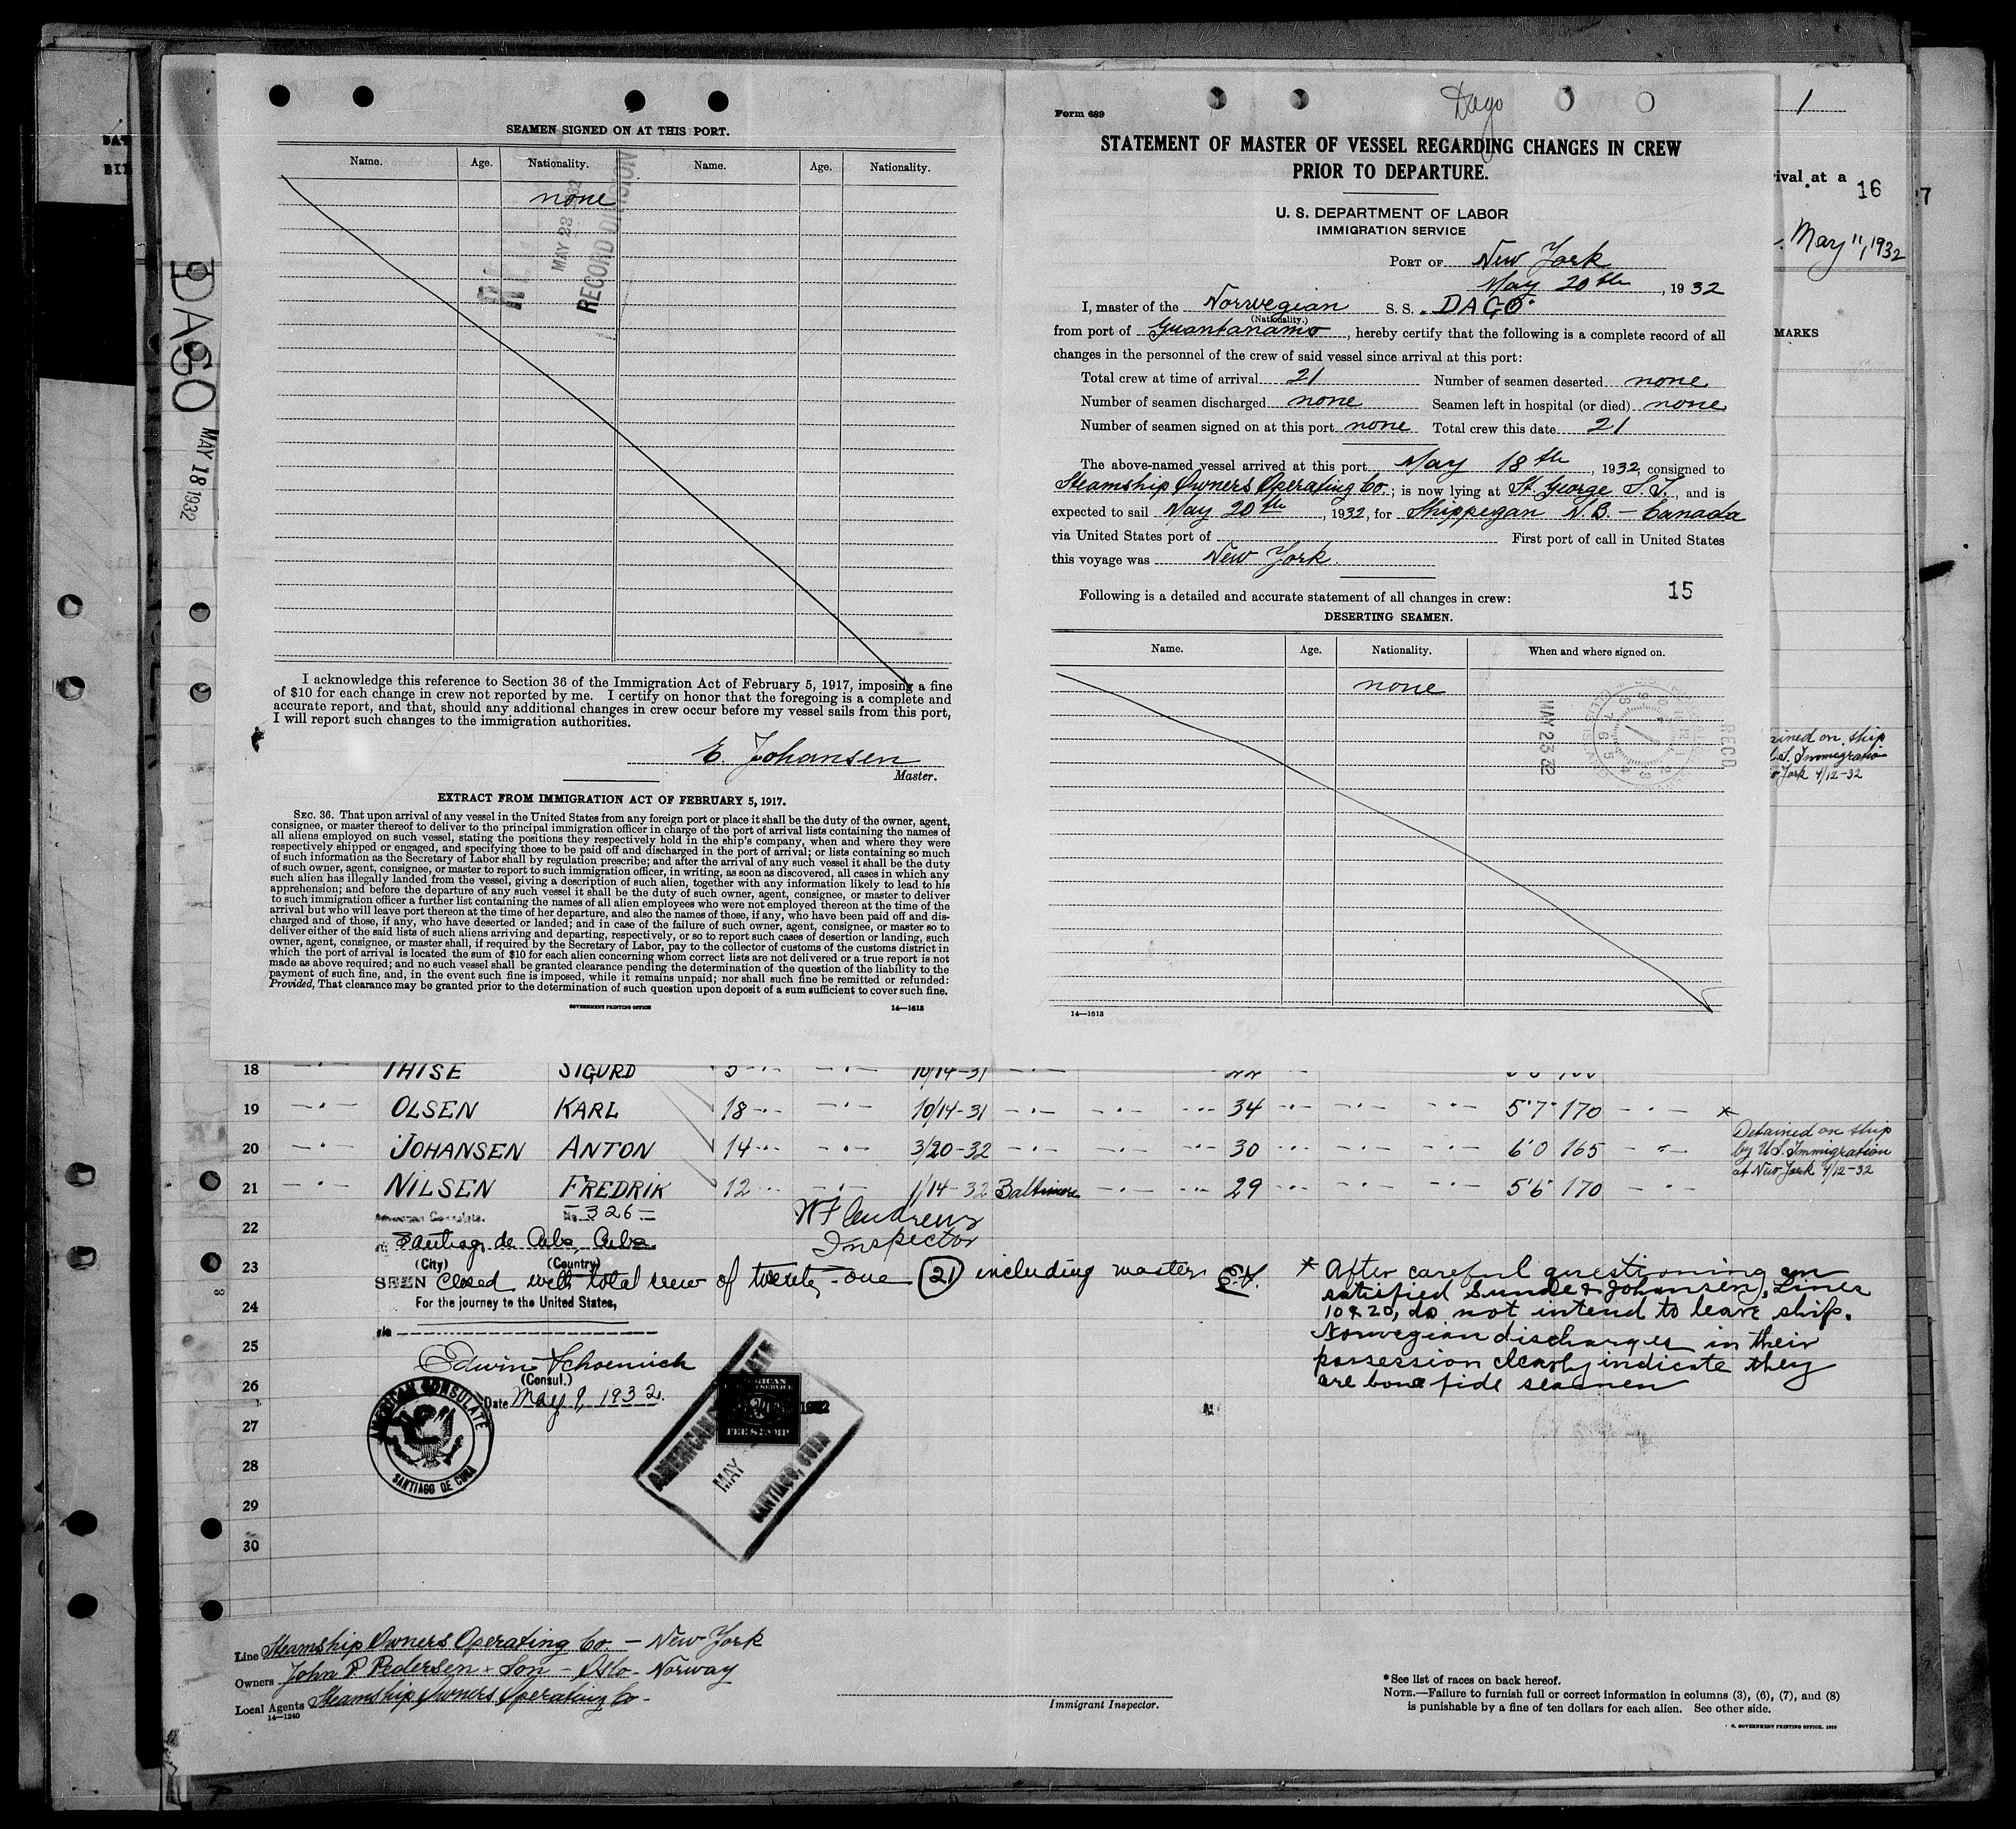 DAGO
MAY 18 1932
SEAMEN SIGNED ON AT THIS PORT.
Name. Age. Nationality. Name. Age. Nationality.
none
MAY 23
RECORD DIVISION
I acknowledge this reference to Section 36 of the Immigration Act of February 5, 1917, imposing a fine
of $10 for each change in crew not reported by me. I certify on honor that the foregoing is a complete and
accurate report, and that, should any additional changes in crew occur before my vessel sails from this port,
I will report such changes to the immigration authorities.
E. Johansen
Master.
EXTRACT FROM IMMIGRATION ACT OF FEBRUARY 5, 1917.
SEC. 36. That upon arrival of any vessel in the United States from any foreign port or place it shall be the duty of the owner, agent,
consignee, or master thereof to deliver to the principal immigration officer in charge of the port of arrival lists containing the names of
all aliens employed on such vessel, stating the positions they respectively hold in the ship's company, when and where they were
respectively shipped or engaged, and specifying those to be paid off and discharged in the port of arrival; or lists containing so much
of such information as the Secretary of Labor shall by regulation prescribe; and after the arrival of any such vessel it shall be the duty
of such owner, agent, consignee, or master to report to such immigration officer, in writing, as soon as discovered, all cases in which any
such alien has illegally landed from the vessel, giving a description of such alien, together with any information likely to lead to his
apprehension; and before the departure of any such vessel it shall be the duty of such owner, agent, consignee, or master to deliver
to such immigration officer a further list containing the names of all alien employees who were not employed thereon at the time of the
arrival but who will leave port thereon at the time of her departure, and also the names of those, if any, who have been paid off and dis-
charged and of those, if any, who have deserted or landed; and in case of the failure of such owner, agent, consignee, or master so to
deliver either of the said lists of such aliens arriving and departing, respectively, or so to report such cases of desertion or landing, such
owner, agent, consignee, or master shall, if required by the Secretary of Labor, pay to the collector of customs of the customs district in
which the port of arrival is located the sum of $10 for each alien concerning whom correct lists are not delivered or a true report is not
made as above required; and no such vessel shall be granted clearance pending the determination of the question of the liability to the
payment of such fine, and, in the event such fine is imposed, while it remains unpaid; nor shall such fine be remitted or refunded:
Provided, That clearance may be granted prior to the determination of such question upon deposit of a sum sufficient to cover such fine.
GOVERNMENT PRINTING OFFICE 14—1613
Dago
Form 689
STATEMENT OF MASTER OF VESSEL REGARDING CHANGES IN CREW
PRIOR TO DEPARTURE.
U. S. DEPARTMENT OF LABOR
IMMIGRATION SERVICE
PORT OF New York
May 20th, 1932
I, master of the Norwegian S. S. "DAGO"
(Nationality.)
from port of Guantanamo, hereby certify that the following is a complete record of all
changes in the personnel of the crew of said vessel since arrival at this port:
Total crew at time of arrival 21 Number of seamen deserted none
Number of seamen discharged none Seamen left in hospital (or died) none
Number of seamen signed on at this port none Total crew this date 21
The above-named vessel arrived at this port May 18th, 1932, consigned to
Steamship Owners Operating Co.; is now lying at St. George S.I., and is
expected to sail May 20th, 1932, for Shippegan N.B. — Canada
via United States port of First port of call in United States
this voyage was New York.
15
Following is a detailed and accurate statement of all changes in crew:
DESERTING SEAMEN.
Name. Age. Nationality. When and where signed on.
none
MAY 23 32
RECD
14—1613
1
rival at a
16
7
May 11, 1932
MARKS
ained on ship
U.S. Immigratio
York 4/12-32
18 THISE SIGURD 5 10/14-31
19 OLSEN KARL 18 10/14-31 34 5'7" 170 *
20 JOHANSEN ANTON 14 3/20-32 30 6'0 165
Detained on ship
by U.S. Immigration
at New York 4/12-32
21 NILSEN FREDRIK 12 1/14-32 Baltimore 29 5'6 170
American Consulate. No. 326
22 W F Andrews
Inspector
at Santiago de Cuba, Cuba.
(City) (Country)
23 SEEN Closed with total crew of twenty-one (21) including master E.S.
24 For the journey to the United States,
via
25 Edwin Schoenrich
(Consul.)
26 Date May 9, 1932.
27
28
29
30
AMERICAN CONSULATE
SANTIAGO DE CUBA
AMERICAN CONSULATE
MAY
SANTIAGO, CUBA
FEE STAMP
* After careful questioning am
satisfied Sunde & Johansen, Lines
10 & 20, do not intend to leave ship.
Norwegian discharges in their
possession clearly indicate they
are bona fide seamen
Line Steamship Owners Operating Co. — New York
Owners John P. Pedersen & Son — Oslo - Norway
Local Agents Steamship Owners Operating Co -
14—1240
Immigrant Inspector.
*See list of races on back hereof.
NOTE.—Failure to furnish full or correct information in columns (3), (6), (7), and (8)
is punishable by a fine of ten dollars for each alien. See other side.